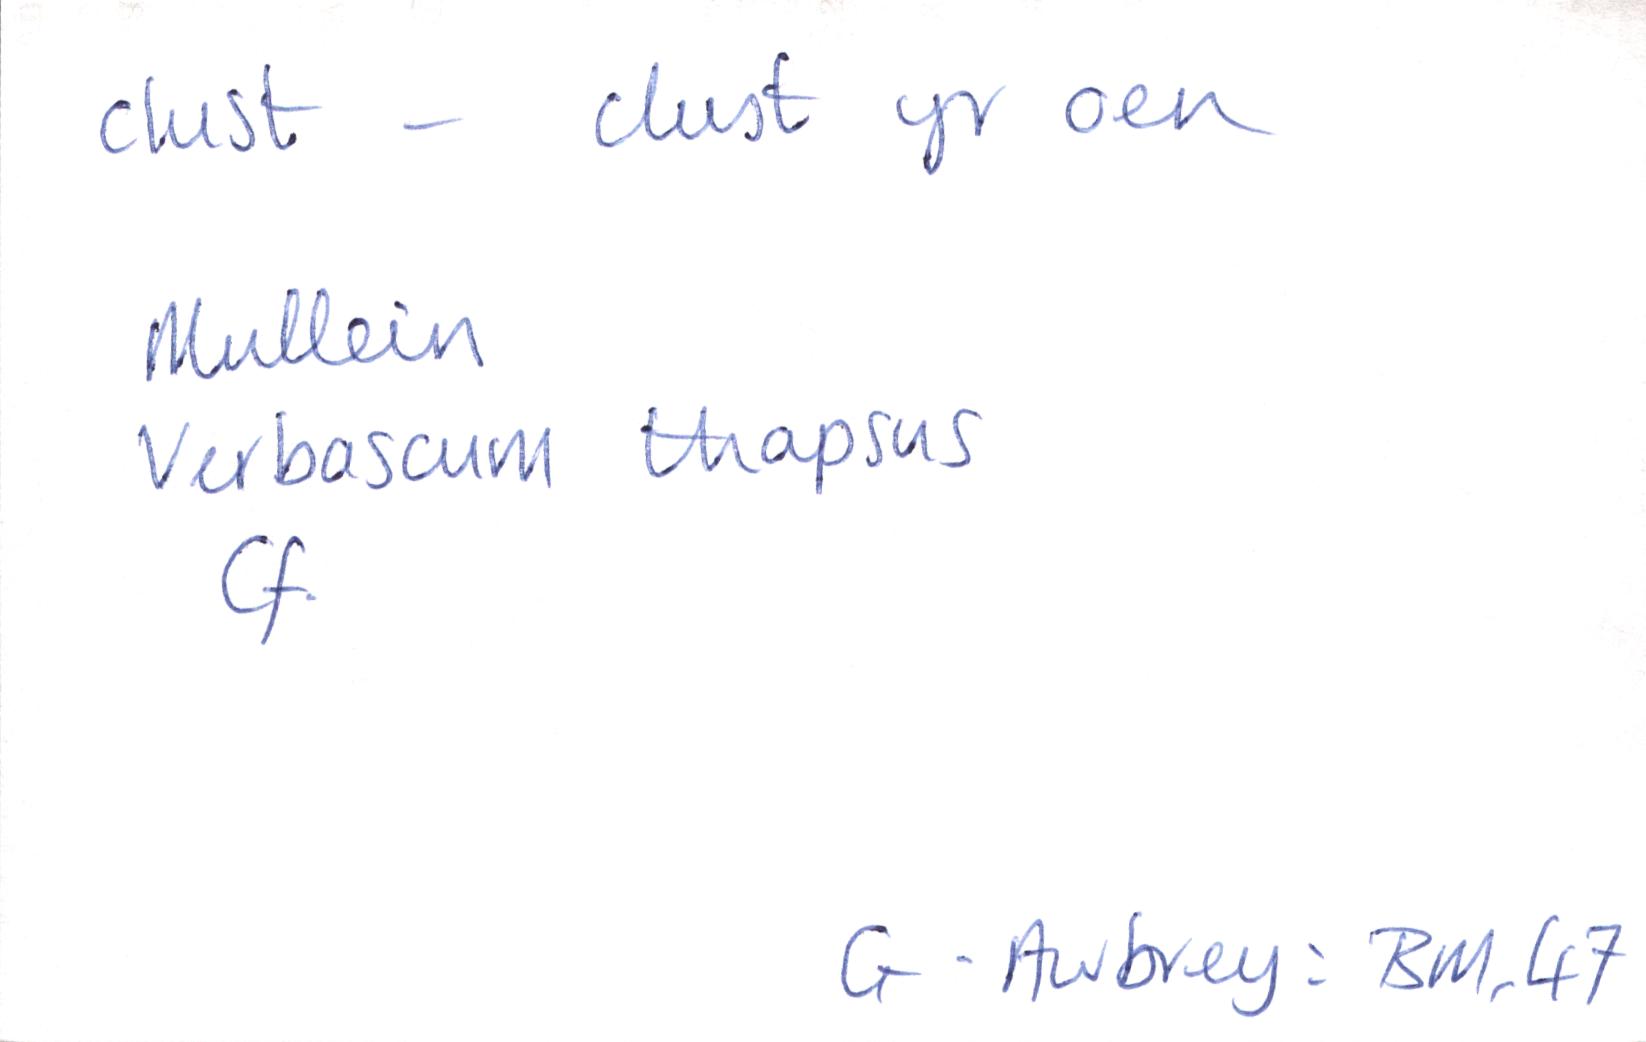 clust - clust yr oen
Mullein
Verbascum thapsus
Cf.
G. Awbrey: BM, 47